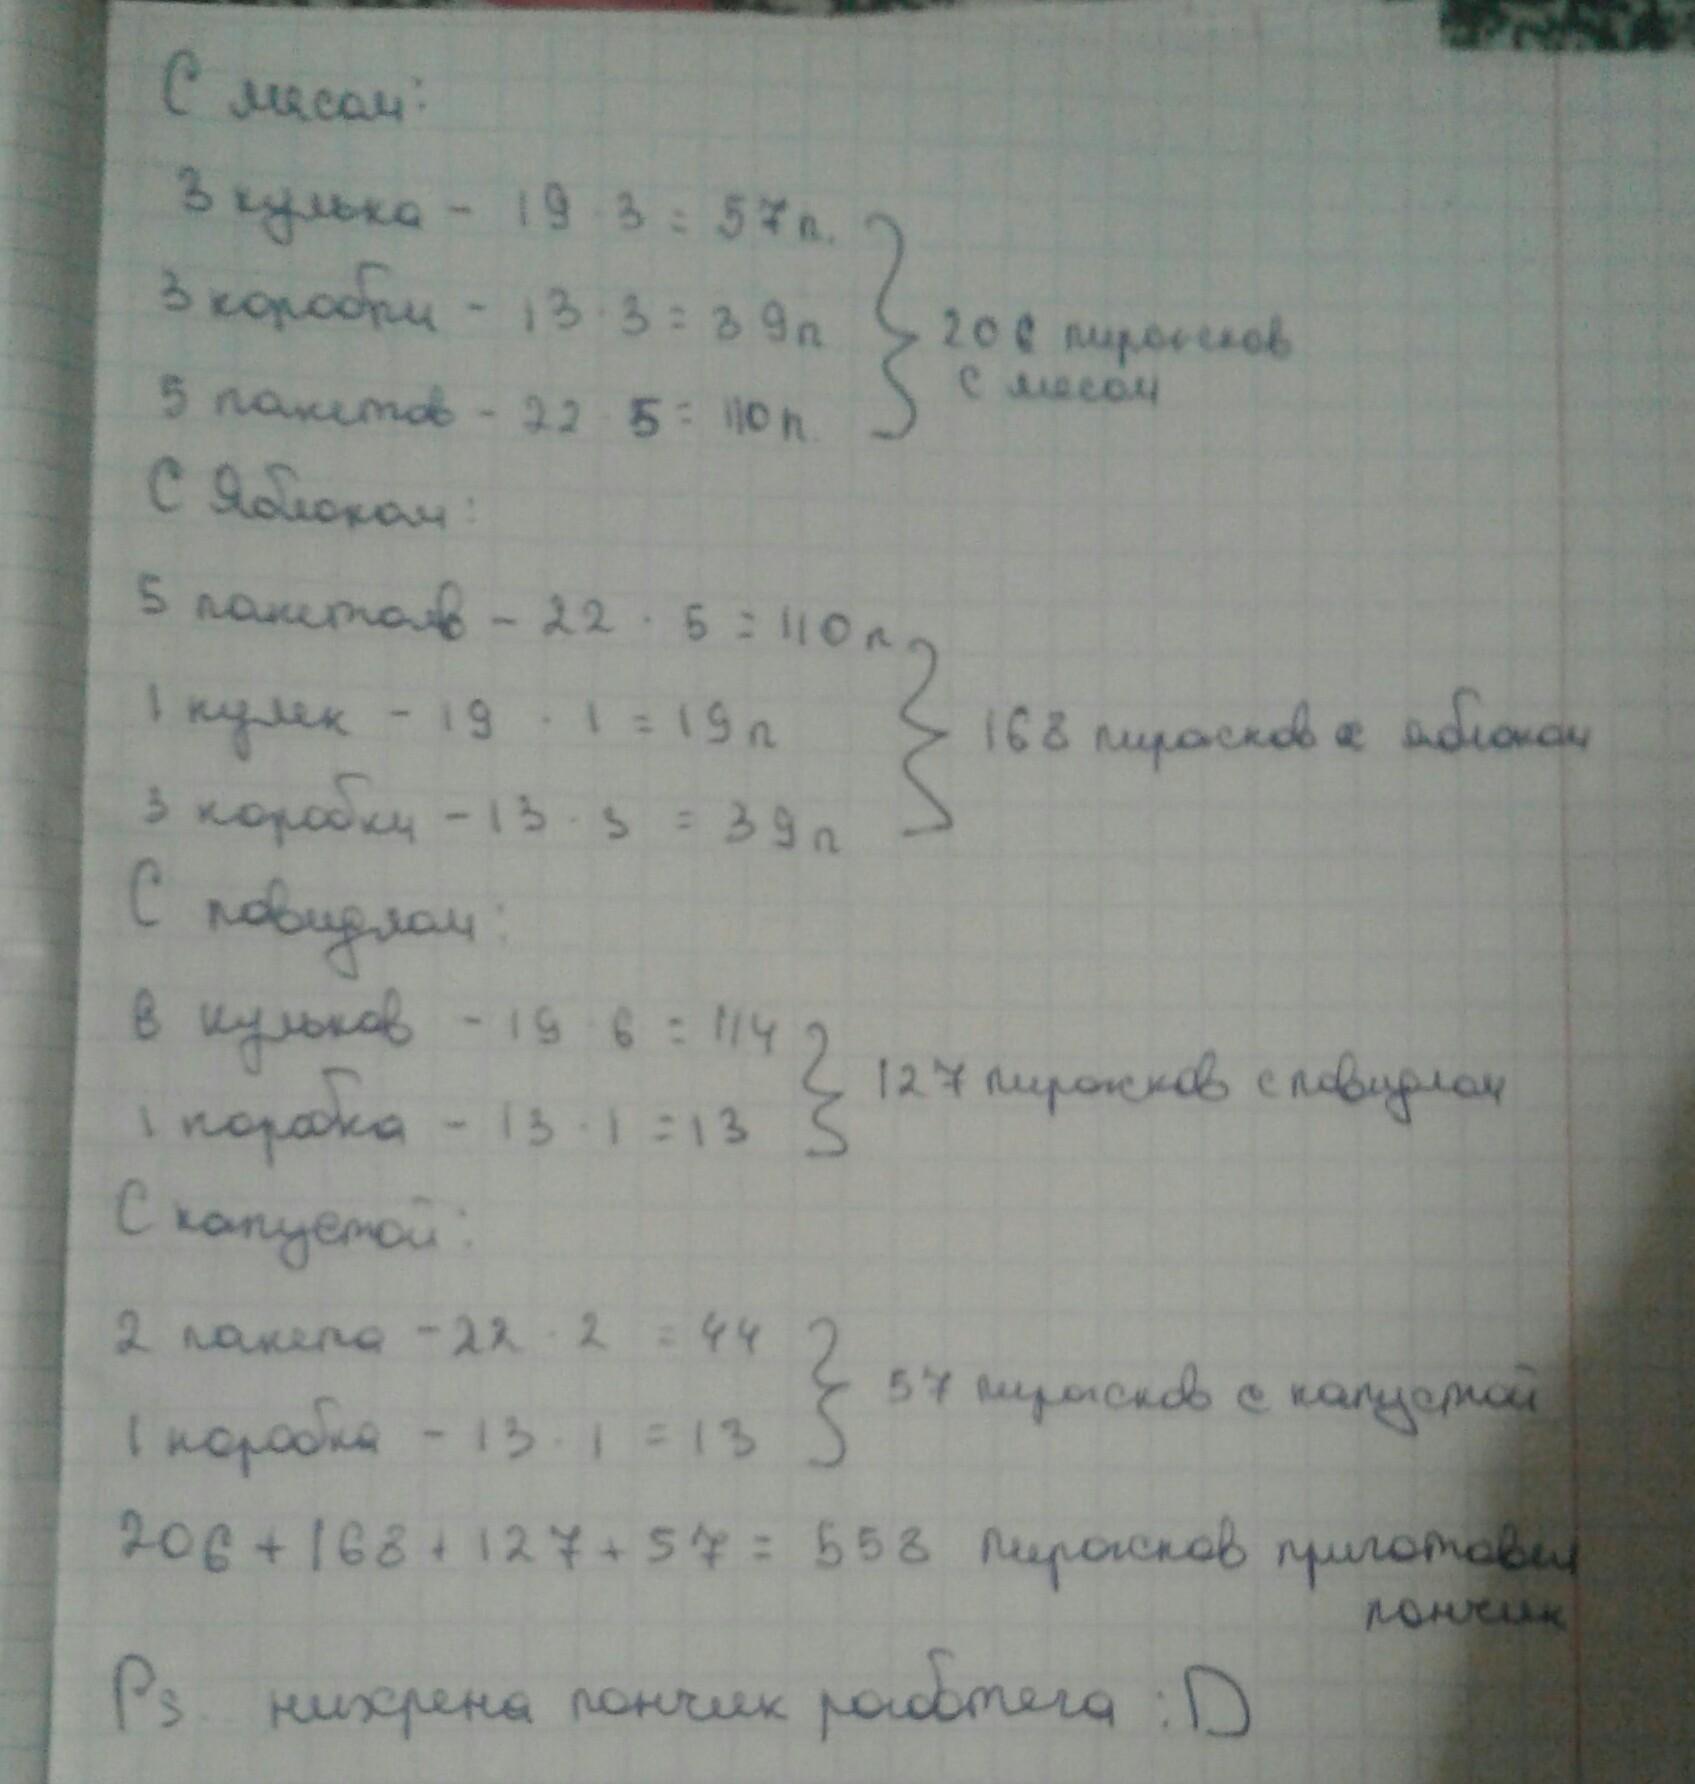 С мясом:
3 кулька - 19 · 3 = 57п.
3 коробки - 13 · 3 = 39п
5 пакетов - 22 · 5 = 110п.
206 пирожков
с мясом
С Яблоком:
5 пакетов - 22 · 5 = 110п
1 кулек - 19 · 1 = 19п
3 коробки - 13 · 3 = 39п
168 пирожков с яблоком
С повидлом:
6 кульков - 19 · 6 = 114
1 коробка - 13 · 1 = 13
127 пирожков с повидлом
С капустой:
2 пакета - 22 · 2 = 44
1 коробка - 13 · 1 = 13
57 пирожков с капустой
206 + 168 + 127 + 57 = 558 пирожков приготовил
пончик
Ps. нихрена пончик работега :D